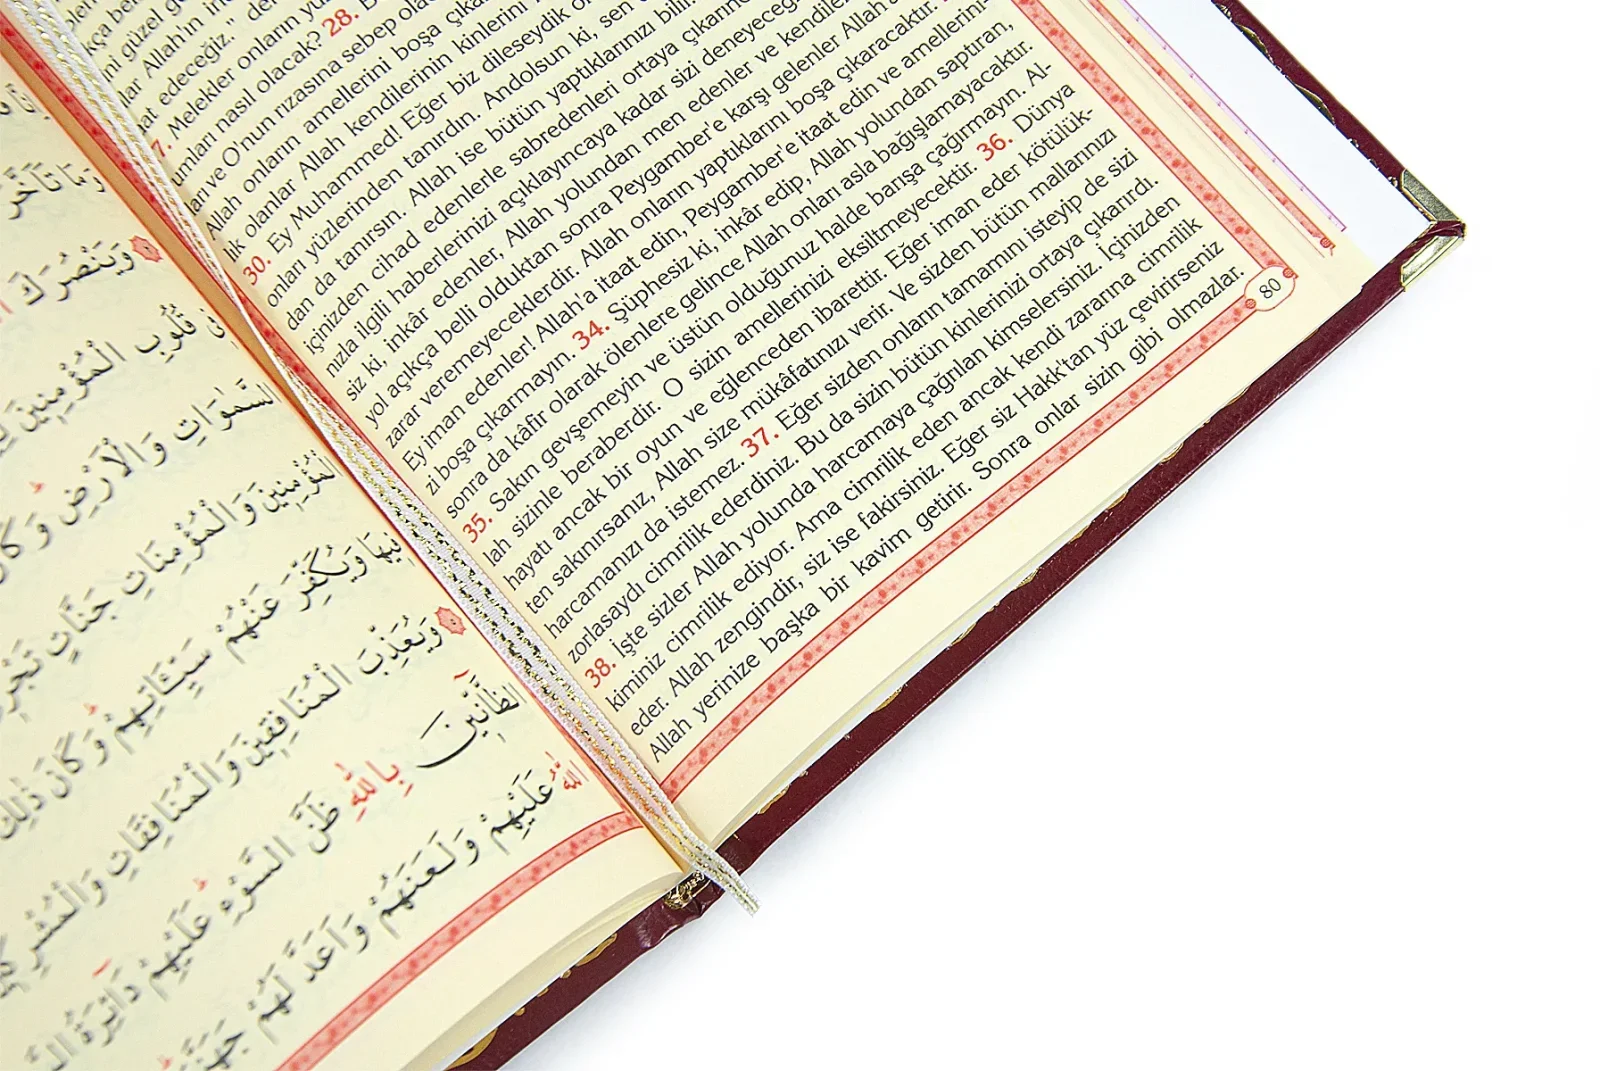 güzel
Allah'ın
edeceğiz." 
Melekler onların
nasıl olacak? 28.
ve O'nun rızasına sebep
Allah onların amellerini boşa
lik olanlar Allah kendilerinin kinlerini
30. Ey Muhammed! Eğer biz dileseydik
onları yüzlerinden tanırdın. Andolsun ki, sen
dan da tanırsın. Allah ise bütün yaptıklarınızı
içinizden cihad edenlerle sabredenleri ortaya
nızla ilgili haberlerinizi açıklayıncaya kadar sizi
siz ki, inkâr edenler, Allah yolundan men edenler ve
yol açıkça belli olduktan sonra Peygamber'e karşı gelenler
zarar veremeyeceklerdir. Allah onların yaptıklarını boşa çıkaracaktır.
Ey iman edenler! Allah'a itaat edin, Peygamber'e itaat edin ve amellerini-
zi boşa çıkarmayın. 34. Şüphesiz ki, inkâr edip, Allah yolundan saptıran,
sonra da kâfir olarak ölenlere gelince Allah onları asla bağışlamayacaktır.
35. Sakın gevşemeyin ve üstün olduğunuz halde barışa çağırmayın. Al-
lah sizinle beraberdir. O sizin amellerinizi eksiltmeyecektir. 36. Dünya
hayatı ancak bir oyun ve eğlenceden ibarettir. Eğer iman eder kötülük-
ten sakınırsanız, Allah size mükâfatınızı verir. Ve sizden bütün mallarınızı
harcamanızı da istemez. 37. Eğer sizden onların tamamını isteyip de sizi
zorlasaydı cimrilik ederdiniz. Bu da sizin bütün kinlerinizi ortaya çıkarırdı.
38. İşte sizler Allah yolunda harcamaya çağrılan kimselersiniz. İçinizden
kiminiz cimrilik ediyor. Ama cimrilik eden ancak kendi zararına cimrilik
eder. Allah zengindir, siz ise fakirsiniz. Eğer siz Hakk'tan yüz çevirirseniz
Allah yerinize başka bir kavim getirir. Sonra onlar sizin gibi olmazlar.
80
وَمَا تَاَخَّرَ
وَيَنْصُرَكَ
قُلُوبِ الْمُؤْمِنٖينَ
السَّمٰوَاتِ وَالْاَرْضِ وَكَانَ
الْمُؤْمِنٖينَ وَالْمُؤْمِنَاتِ جَنَّاتٍ تَجْرٖي
فٖيهَا وَيُكَفِّرَ عَنْهُمْ سَيِّـَٔاتِهِمْ وَكَانَ ذٰلِكَ
وَيُعَذِّبَ الْمُنَافِقٖينَ وَالْمُنَافِقَاتِ وَالْمُشْرِكٖينَ
الظَّٓانّٖينَ بِاللّٰهِ ظَنَّ السَّوْءِ عَلَيْهِمْ دَٓائِرَةُ
اللّٰهُ عَلَيْهِمْ وَلَعَنَهُمْ وَاَعَدَّ لَهُمْ جَهَنَّمَ